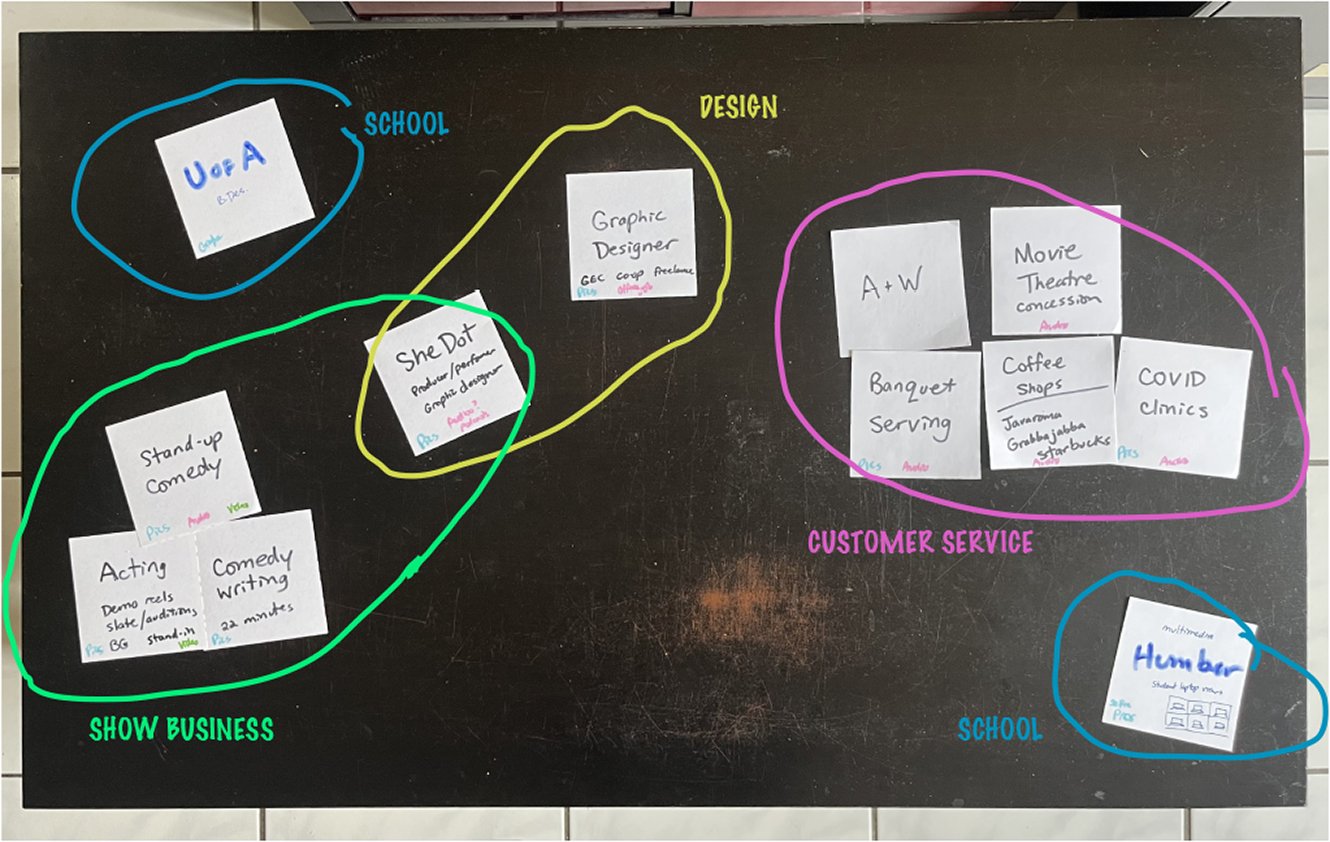 SCHOOL
U of A
B.Des.
DESIGN
Graphic
Designer
GEC co-op freelance
Pics
SheDot
Producer/performer
Graphic designer
Pics
podcasts
Stand-up
Comedy
Pics Audio Video
Acting
Demo reels
slate/auditions
BG stand-in
Pics Video
Comedy
writing
22 minutes
Pics
SHOW BUSINESS
A+W
Movie
Theatre
concession
Audio
Banquet
Serving
Pics Audio
Coffee
Shops
Javaroma
Grabbajabba
starbucks
Audio
COVID
Clinics
Pics Audio
CUSTOMER SERVICE
multimedia
Humber
Student laptop views
SCHOOL